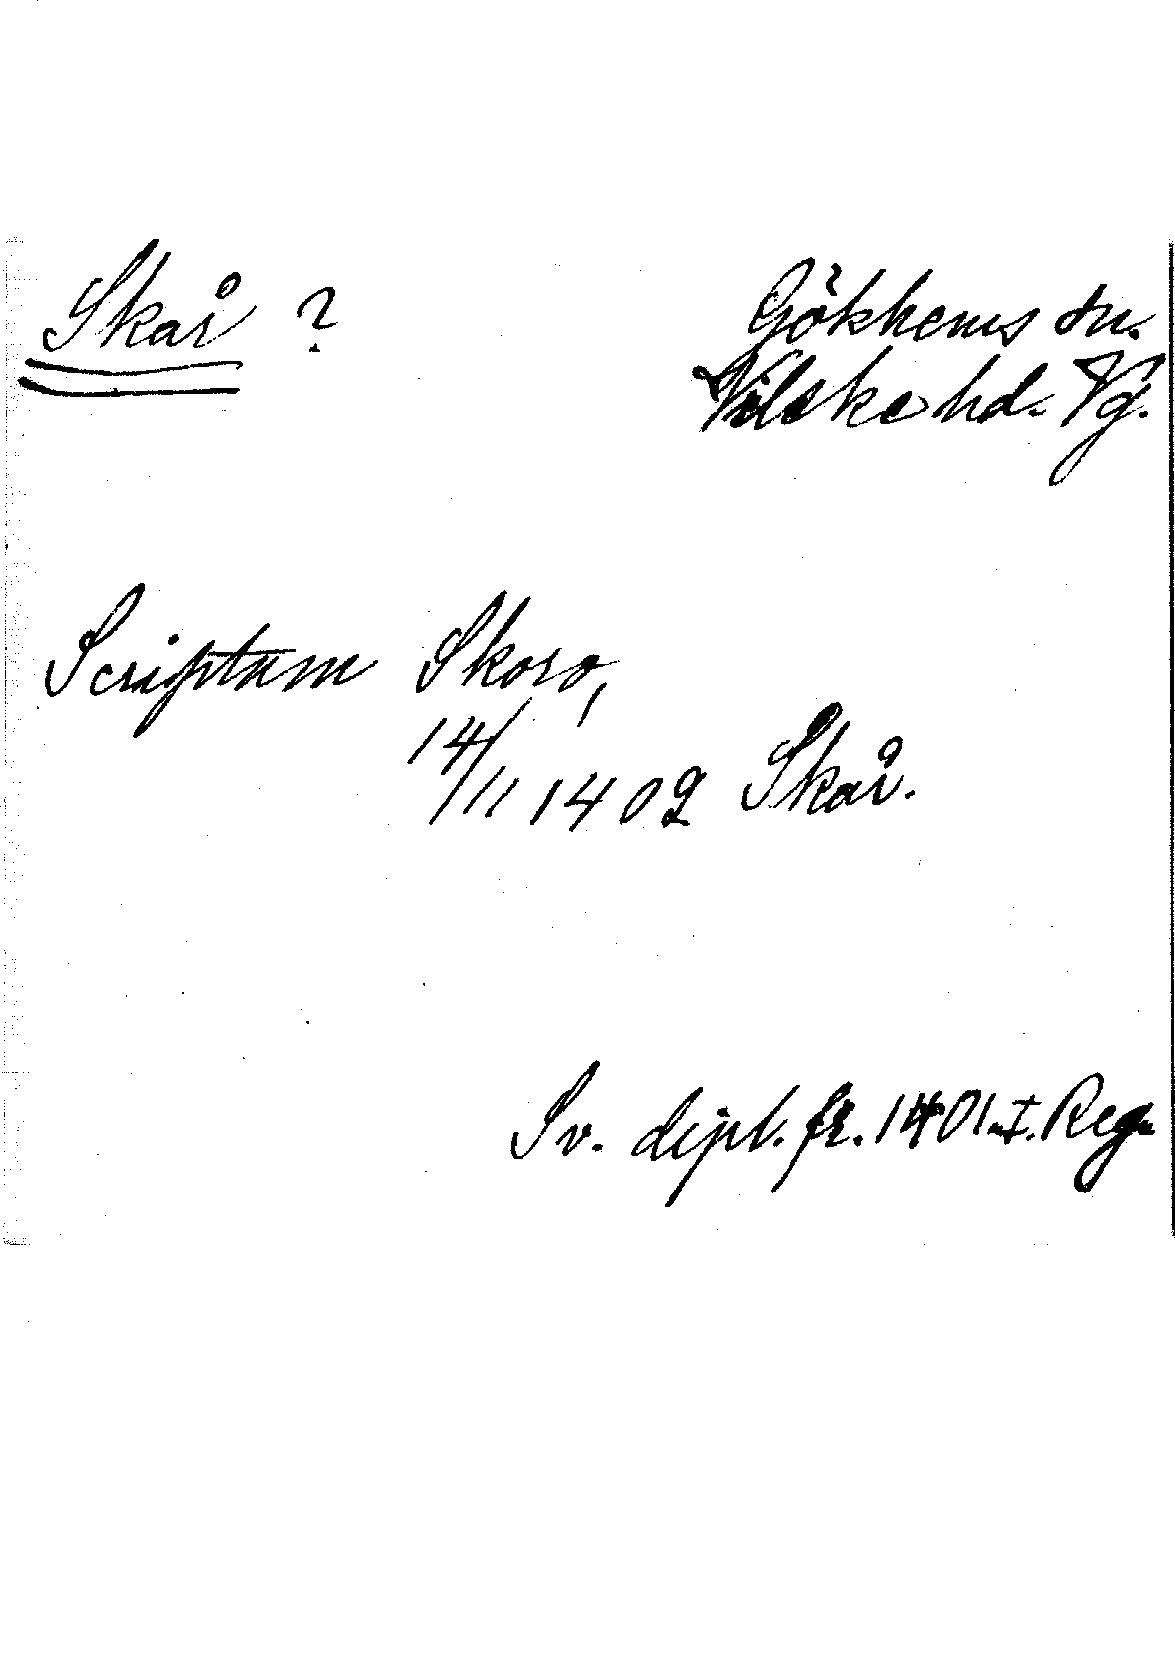 Skår ?
Gökhems sn.
Vilske hd. Vg.
Scriptum Skoro,
14/11 1402 Skår.
Sv. dipl. fr. 1401. I. Reg.